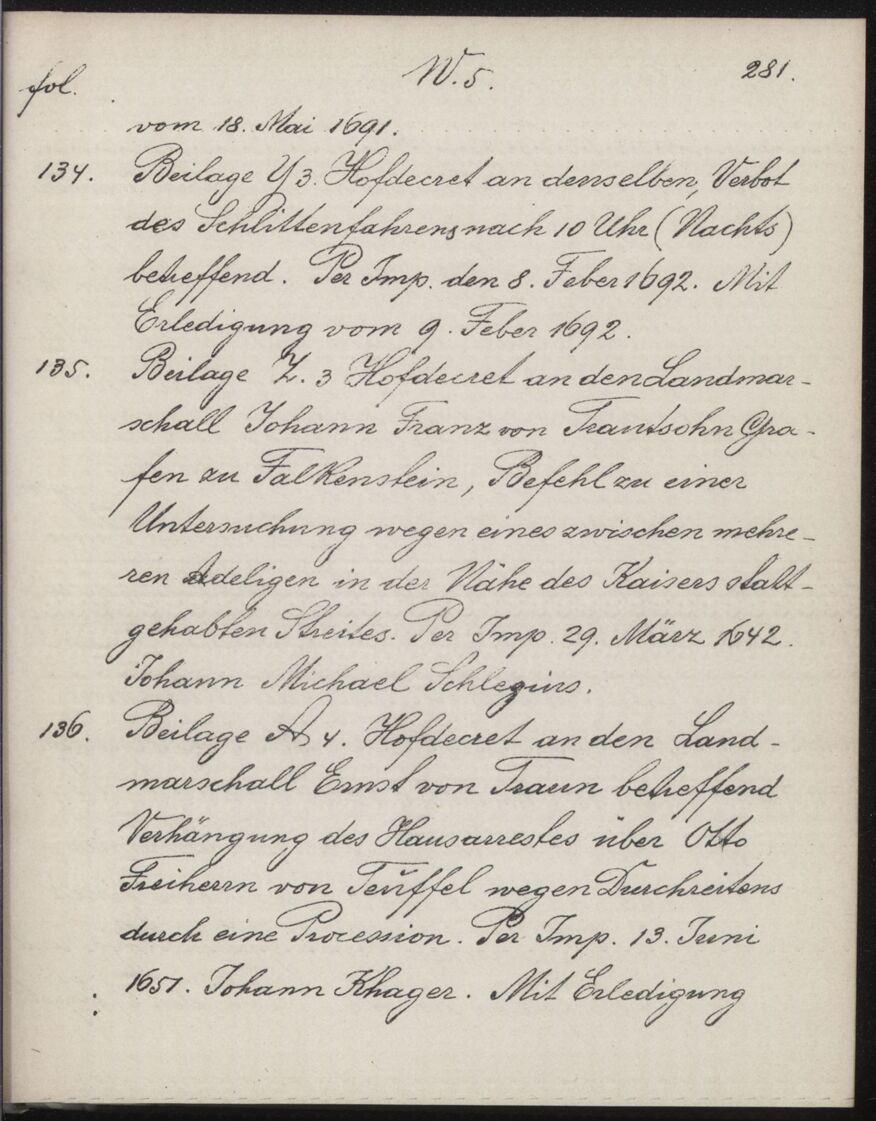 fol. W. 5. 281.
vom 18. Mai 1691.
134. Beilage Y 3. Hofdecret an denselben, Verbot
des Schlittenfahrens nach 10 Uhr (Nachts)
betreffend. Per Imp. den 8. Feber 1692. Mit
Erledigung vom 9. Feber 1692.
135. Beilage Z. 3 Hofdecret an den Landmar-
schall Johann Franz von Trautsohn Gra-
fen zu Falkenstein, Befehl zu einer
Untersuchung wegen eines zwischen mehre-
ren Adeligen in der Nähe des Kaisers statt-
gehabten Streites. Per Imp. 29. März 1642.
Johann Michael Schlegins.
136. Beilage A 4. Hofdecret an den Land-
marschall Ernst von Traun betreffend
Verhängung des Hausarrestes über Otto
Freiherrn von Teuffel wegen Durchreitens
durch eine Procession. Per Imp. 13. Juni
1651. Johann Khager. Mit Erledigung